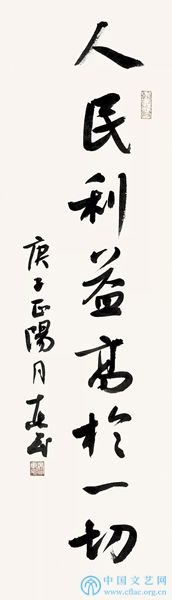 人民利益高於一切
庚子正陽月
中国文艺网
www.cflac.org.cn